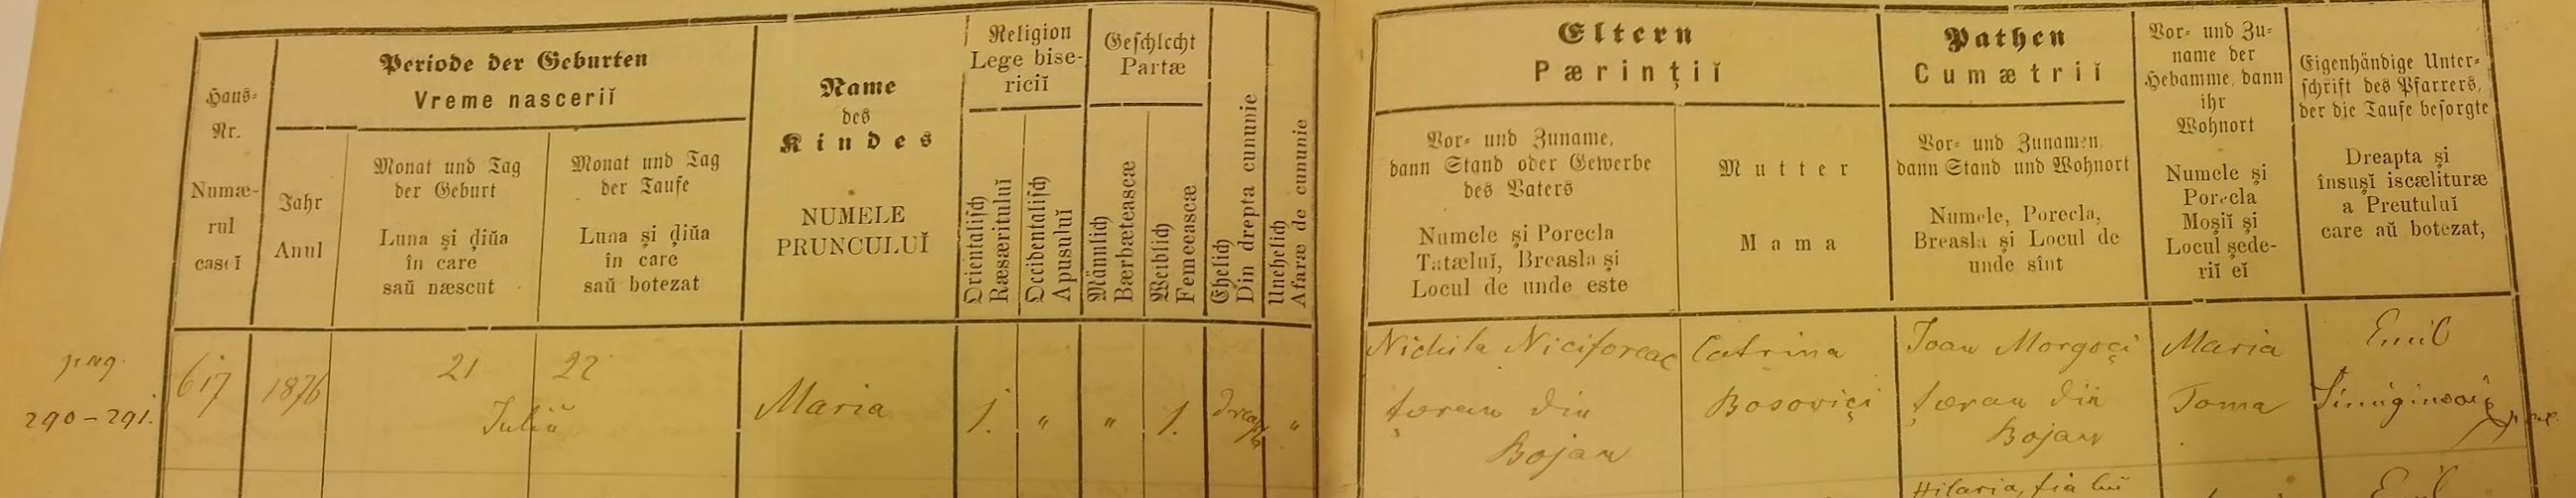 Haus-
Nr.
Numæ-
rul
caseĭ
Periode der Geburten
Vreme nasceriĭ
Jahr
Anul
Monat und Tag
der Geburt
Luna și ḑiŭa
în care
saŭ næscut
Monat und Tag
der Taufe
Luna și ḑiŭa
în care
saŭ botezat
Name
des
Kindes
NUMELE
PRUNCULUĬ
Religion
Lege bise-
riciĭ
Orientalisch
Ræsærituluĭ
Occidentalisch
Apusuluĭ
Geschlecht
Partæ
Männlich
Bærbæteascæ
Weiblich
Femeeascæ
Ehelich
Din drepta cununie
Unehelich
Afaræ de cununie
Eltern
Pærințiĭ
Vor- und Zuname,
dann Stand oder Gewerbe
des Vaters
Numele și Porecla
Tatæluĭ, Breasla și
Locul de unde este
Mutter
Mama
Pathen
Cumætriĭ
Vor- und Zunamen,
dann Stand und Wohnort
Numele, Porecla,
Breasla și Locul de
unde sînt
Vor- und Zu-
name der
Hebamme, dann
ihr
Wohnort
Numele și
Porecla
Moșiĭ și
Locul șede-
riĭ eĭ
Eigenhändige Unter-
schrift des Pfarrers,
der die Taufe besorgte
Dreapta și
însușĭ iscælituræ
a Preutuluĭ
care aŭ botezat,
290-291.
617
1876
21 22
Iuliŭ
Maria
1. " " 1. "
Nichita Niciforeac
țæran din
Bojan
Catrina
Bosovici
Ioan Morgoci
țæran din
Bojan
Maria
Toma
Emil
Hilaria, fia lui
Emil